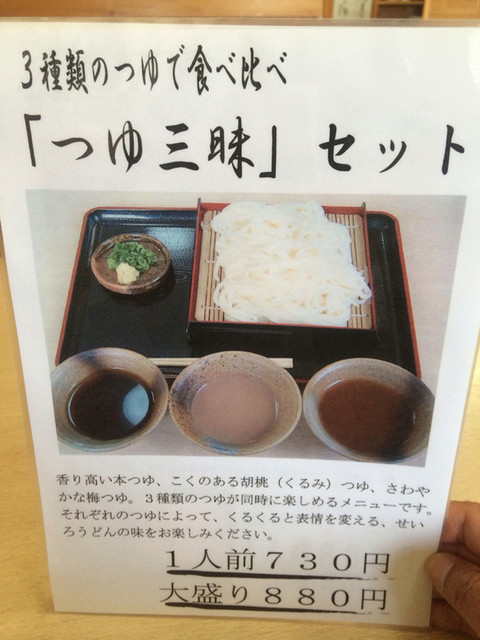 3種類のつゆで食べ比べ
「つゆ三昧」セット
香り高い本つゆ、こくのある胡桃（くるみ）つゆ、さわや
かな梅つゆ。３種類のつゆが同時に楽しめるメニューです。
それぞれのつゆによって、くるくると表情を変える、せい
ろうどんの味をお楽しみください。
１人前７３０円
大盛り８８０円